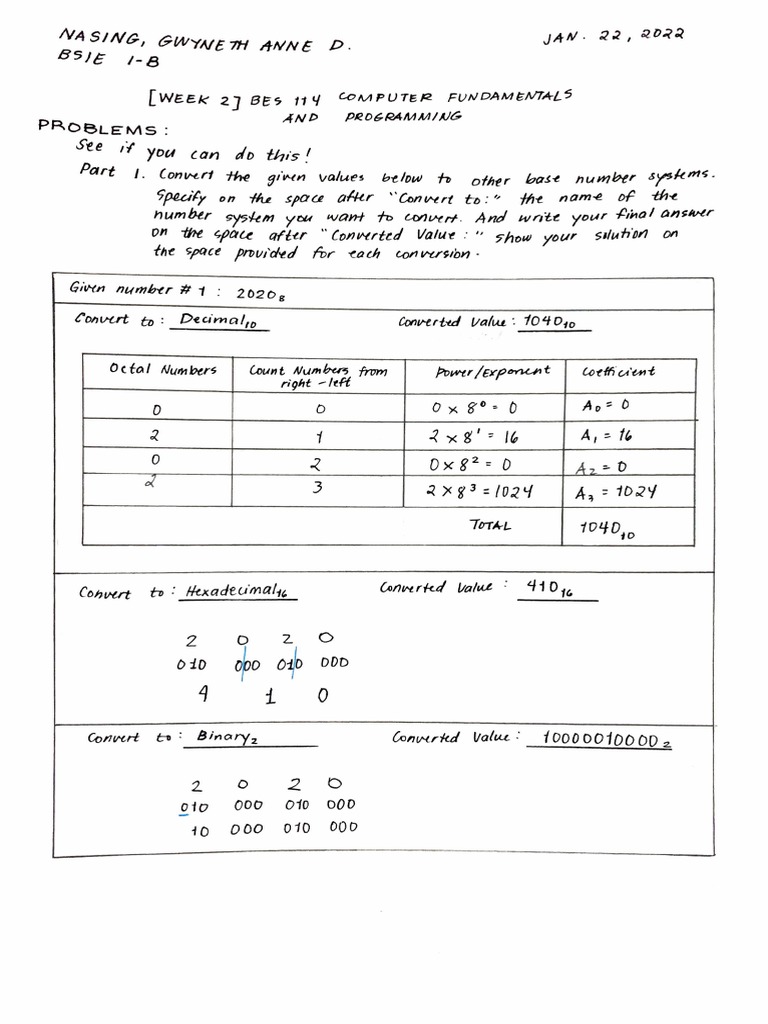 NASING, GWYNETH ANNE D.
JAN. 22, 2022
BSIE 1-B
[WEEK 2] BES 114 COMPUTER FUNDAMENTALS
AND PROGRAMMING
PROBLEMS:
See if you can do this!
Part 1. Convert the given values below to other base number systems.
Specify on the space after "Convert to:" the name of the
number system you want to convert. And write your final answer
on the space after "Converted Value:" show your solution on
the space provided for each conversion.
Given number #1: 2020₈
Convert to: Decimal₁₀ Converted Value: 1040₁₀
Octal Numbers Count Numbers from Power/Exponent Coefficient
right-left
0 0 0 x 8⁰ = 0 A₀ = 0
2 1 2 x 8¹ = 16 A₁ = 16
0 2 0 x 8² = 0 A₂ = 0
2 3 2 x 8³ = 1024 A₃ = 1024
TOTAL 1040₁₀
Convert to: Hexadecimal₁₆ Converted Value: 410₁₆
2 0 2 0
010 000 010 000
4 1 0
Convert to: Binary₂ Converted Value: 10000010000₂
2 0 2 0
010 000 010 000
10 000 010 000